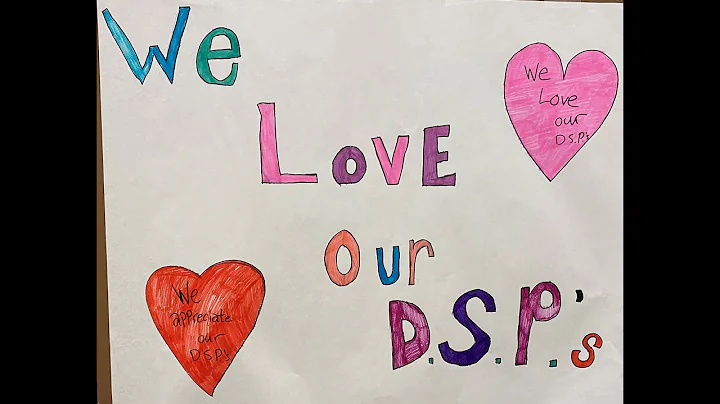 We
Love
our
D.S.P.'s
We
Love
our
D.S.P.'s
We
appreciate
our
D.S.P.'s